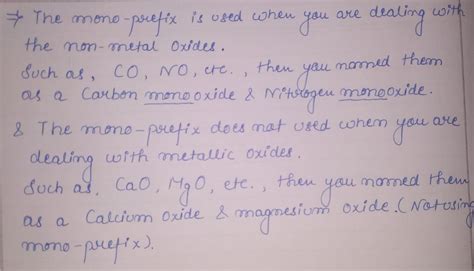 ⇒ The mono-prefix is used when you are dealing with
the non-metal oxides.
Such as, CO, NO, etc., then you nomed them
as a Carbon monooxide & Nitrogen monooxide.
& The mono-prefix does not used when you are
dealing with metallic oxides.
Such as, CaO, MgO, etc., then you nomed them
as a Calcium oxide & magnesium oxide. (Not using
mono-prefix).